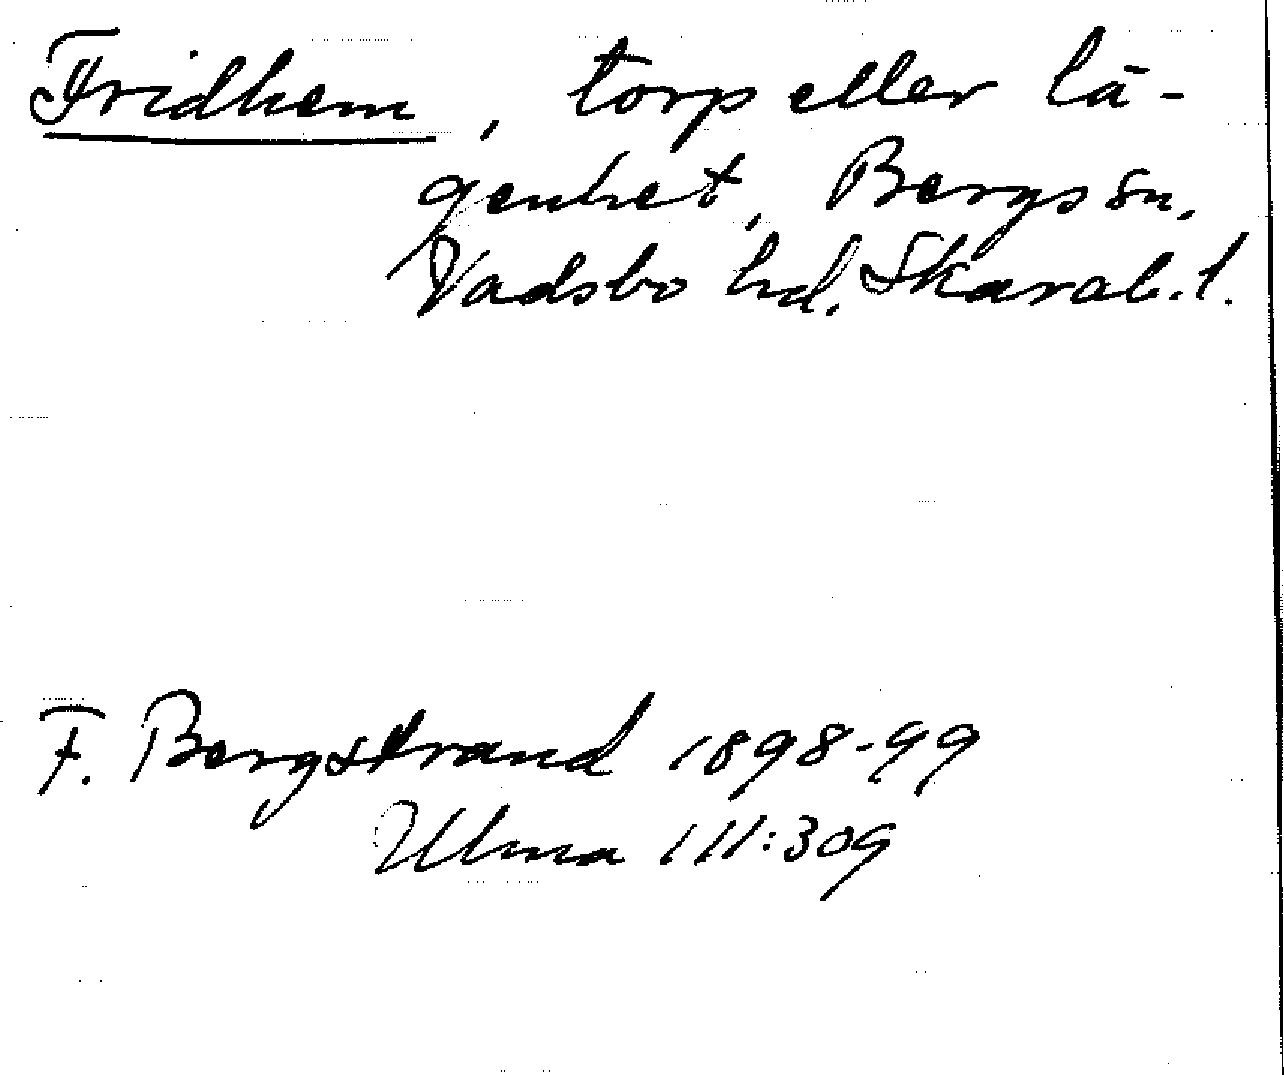 Fridhem, torp eller lä-
genhet, Bergs sn,
Vadsbo hd. Skarab. l.
F. Bergstrand 1898-99
Ulma 111:309